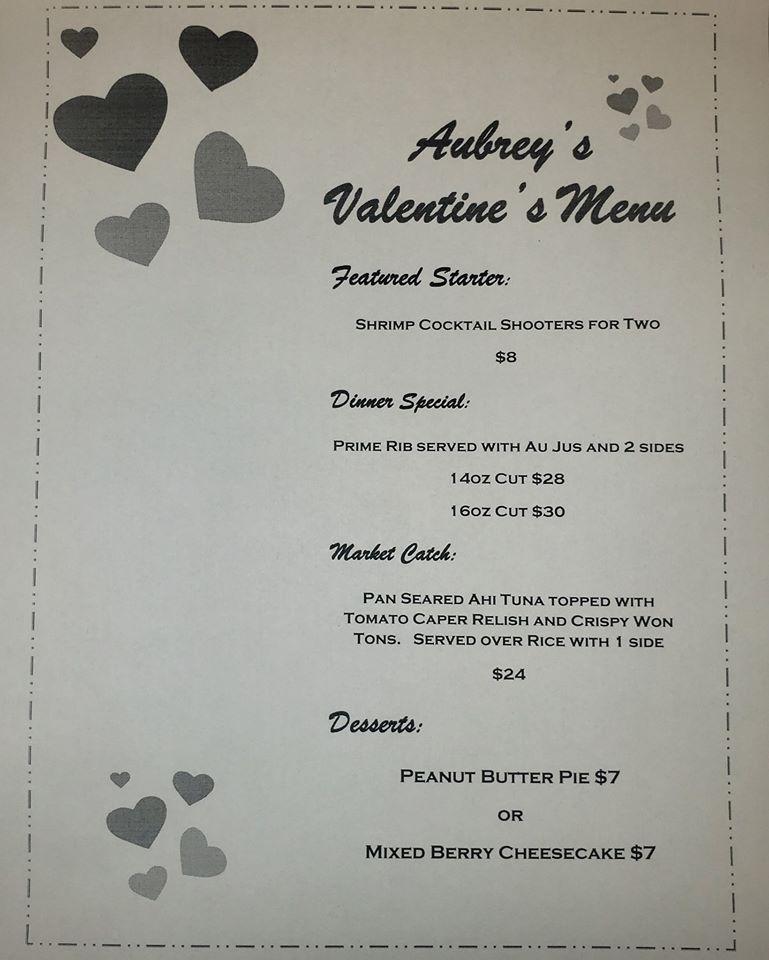 Aubrey's
Valentine's Menu
Featured Starter:
Shrimp Cocktail Shooters for Two
$8
Dinner Special:
Prime Rib served with Au Jus and 2 sides
14oz Cut $28
16oz Cut $30
Market Catch:
Pan Seared Ahi Tuna topped with
Tomato Caper Relish and Crispy Won
Tons. Served over Rice with 1 side
$24
Desserts:
Peanut Butter Pie $7
or
Mixed Berry Cheesecake $7